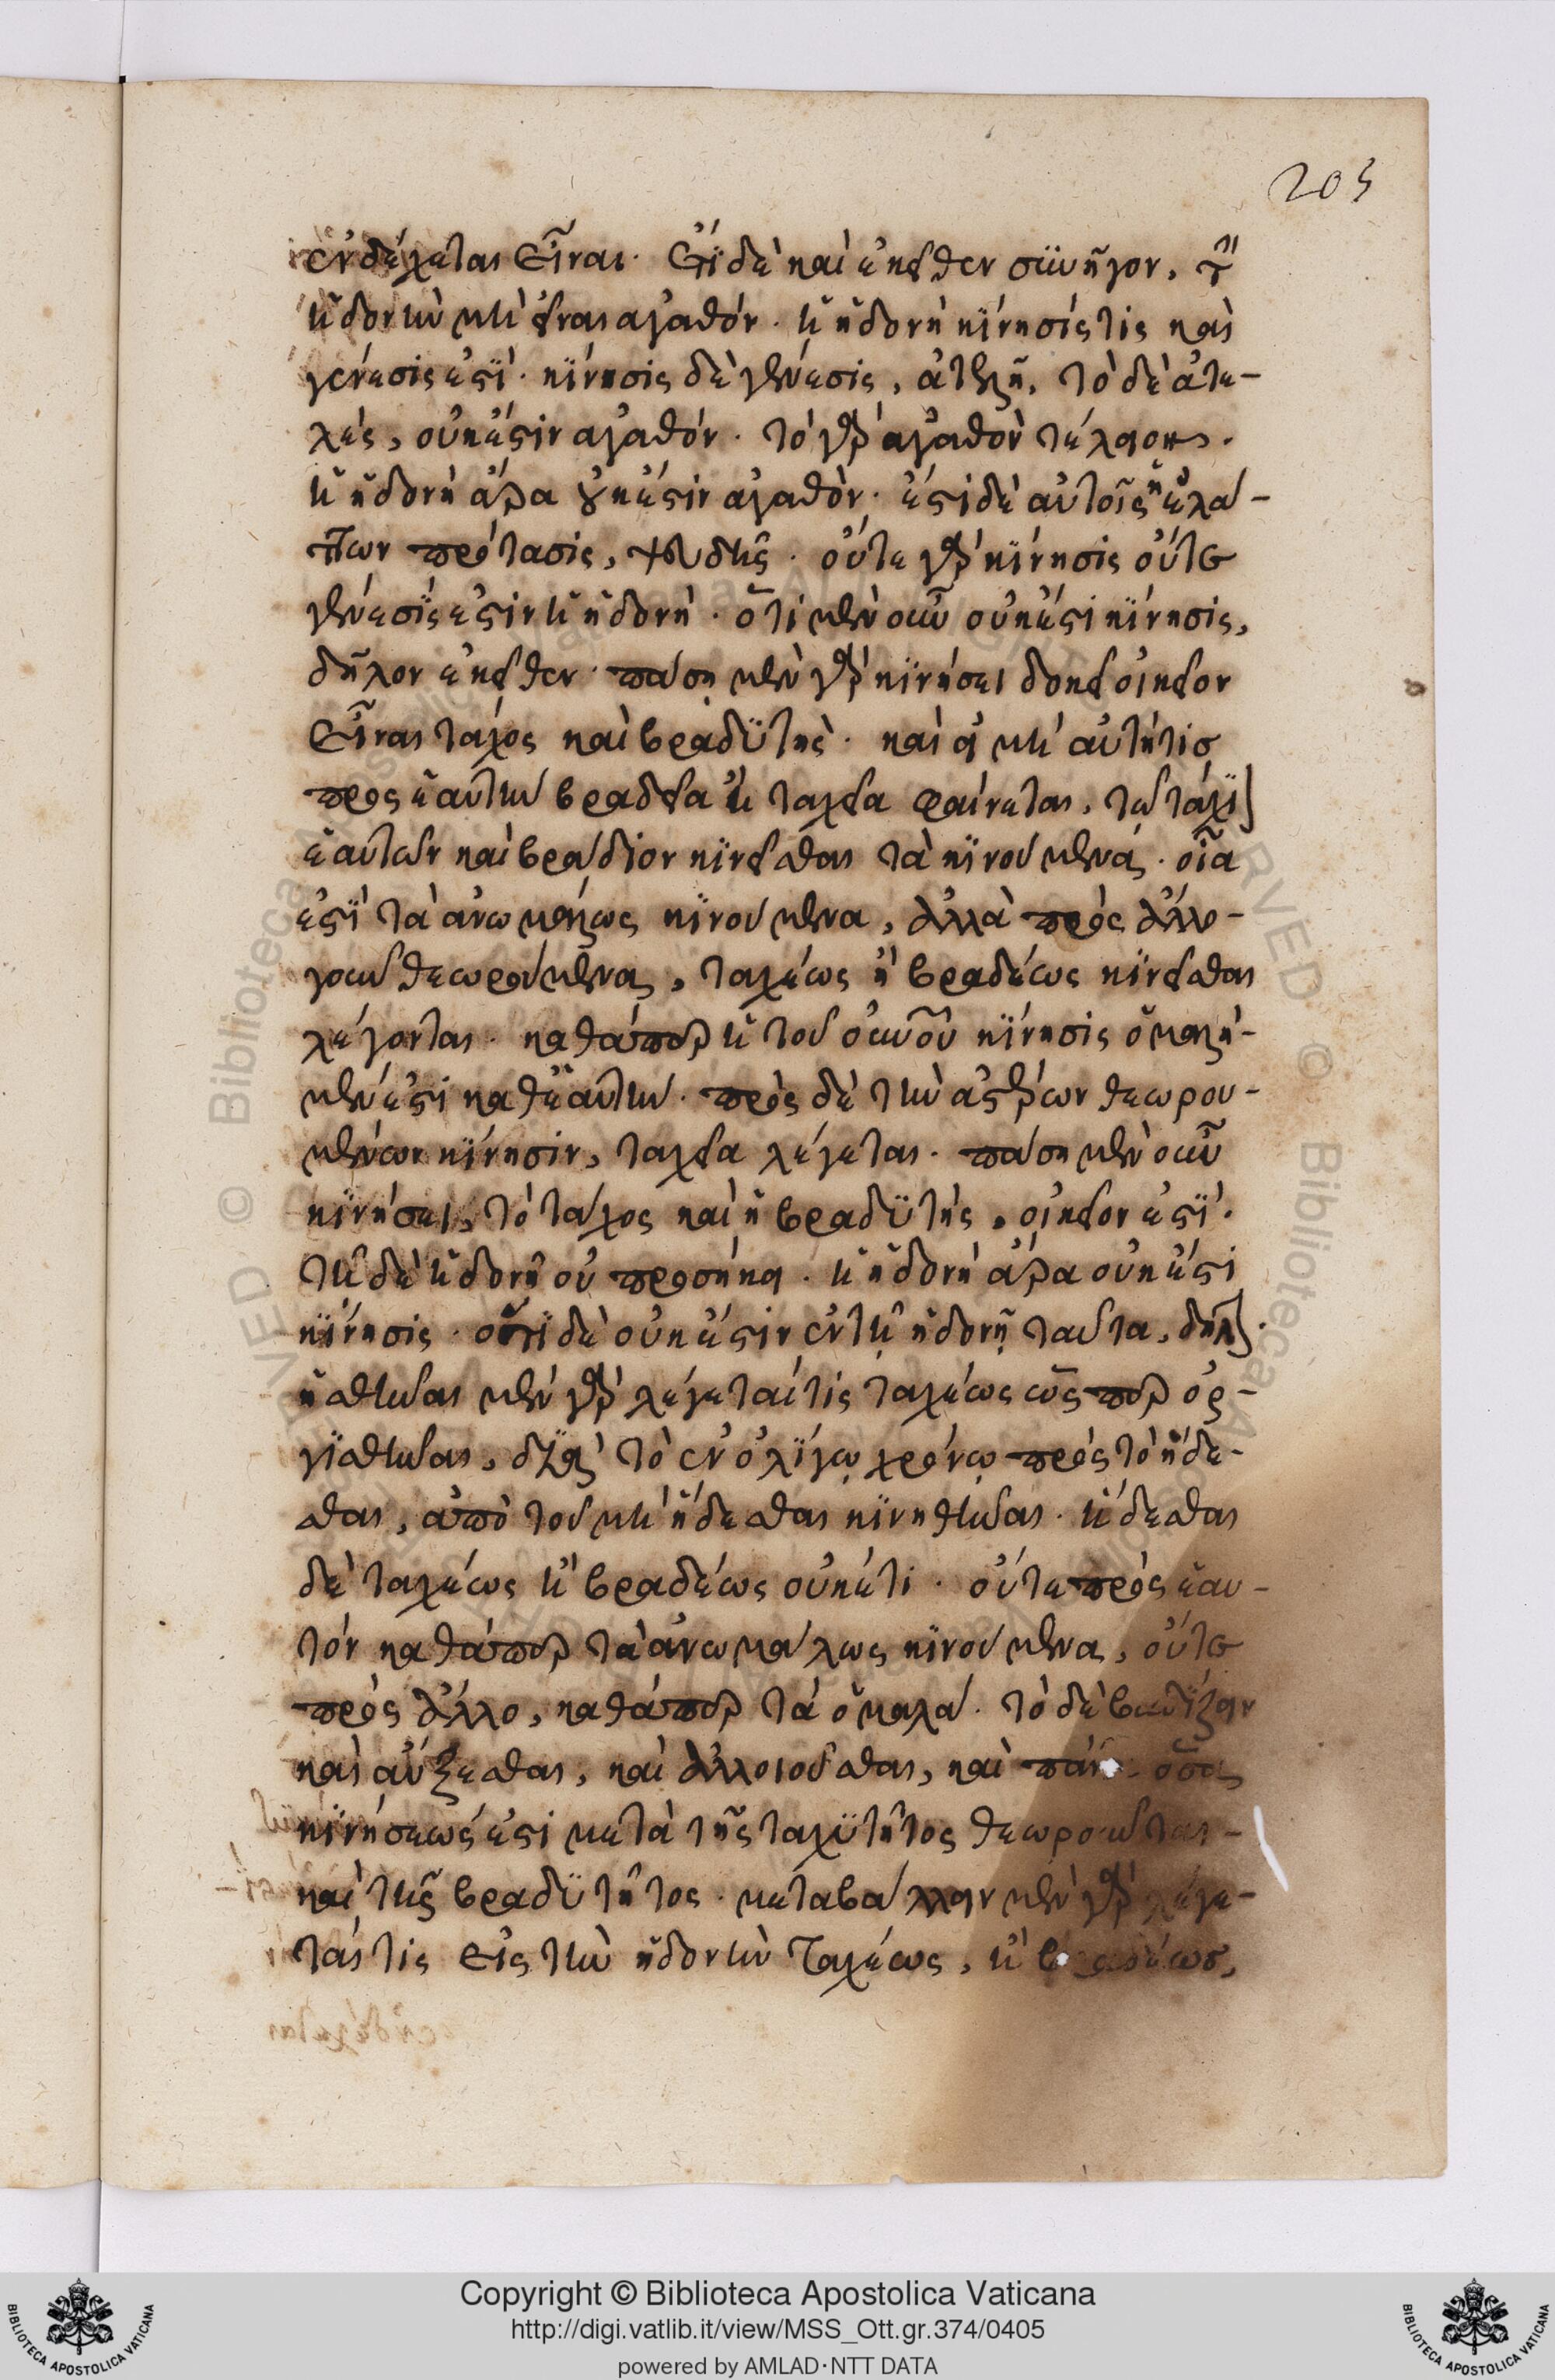 203
ἐνδέχεται εἶναι. ἔτι δὲ καὶ ἐκεῖθεν συνῆγον, τ(ὴν)
ἡδονὴν μὴ εἶναι ἀγαθόν. ἡ ἡδονὴ κίνησίς τις καὶ
γένεσις ἐστί. κίνησις δὲ γένεσις, ἀτελῆ. τὸ δὲ ἀτε-
λὲς, οὐκ ἔστιν ἀγαθόν. τὸ γὰρ ἀγαθὸν τέλειον.
ἡ ἡδονὴ ἄρα οὐκ ἔστιν ἀγαθὸν. ἔστι δὲ αὐτοῖς ἡ ἐλά-
ττων πρότασις, ψευδής. οὔτε γὰρ κίνησις οὔτε
γένεσίς ἐστιν ἡ ἡδονή. ὅτι μὲν οὖν οὐκ ἔστι κίνησις,
δῆλον ἐκεῖθεν. πάσῃ μὲν γὰρ κινήσει δοκεῖ οἰκεῖον
εἶναι τάχος καὶ βραδύτης. καὶ εἰ μὴ αὐτή τισ
πρὸς ἑαυτὴν βραδεῖα ἢ ταχεῖα φαίνεται, τῷ τάχι(ον)
ἑαυτῶν καὶ βράδιον κινεῖσθαι τὰ κινούμενά. οἷα
ἐστὶ τὰ ἀνωμάλως κινούμενα, ἀλλὰ πρὸς ἄλλο
γοῦν θεωρούμεναι, ταχέως ἢ βραδέως κινεῖσθαι
λέγονται. καθάπερ ἡ τοῦ οὐνοῦ κίνησις ὁμαλὴ
μέν ἐστι καθ' ἑαυτὴν. πρὸς δὲ τὴν ἀστέρων θεωρου-
μένων κίνησιν, ταχεῖα λέγεται. πάσῃ μὲν οὖν
κινήσει, τὸ τάχος καὶ ἡ βραδυτής, οἰκεῖον ἐστί.
τῇ δὲ ἡδονῇ οὐ προσήκει. ἡ ἡδονὴ ἄρα οὐκ ἔστι
κίνησις. ὅτι δὲ οὐκ ἔστιν ἐν τῇ ἡδονῇ ταῦτα, δῆλ(ον).
ἡσθῆναι μὲν γὰρ λέγεταί τις ταχέως ὥσπερ ὀρ-
γισθῆναι, διὰ τὸ ἐν ὀλίγῳ χρόνῳ πρὸς τὸ ἥδε-
σθαι, ἀπὸ τοῦ μὴ ἥδεσθαι κινηθῆναι. ἥδεσθαι
δὲ ταχέως ἢ βραδέως οὐκέτι. οὔτε πρὸς ἑαυ-
τόν καθάπερ τὰ ἀνωμάλως κινούμενα, οὔτε
πρὸς ἄλλο, καθάπερ τὰ ὁμαλά. τὸ δὲ βαδίζειν
καὶ αὔξεσθαι, καὶ ἀλλοιοῦσθαι, καὶ ὅσα
κινήσεώς ἐστι μετὰ τῆς ταχυτῆτος θεωροῦνται
καὶ τῆς βραδυτῆτος. μεταβάλλειν μὲν γὰρ λέγε-
ταί τις εἰς τὴν ἡδονὴν ταχέως, ἢ βραδέωσ,
ἐνδέχεται
Copyright © Biblioteca Apostolica Vaticana
http://digi.vatlib.it/view/MSS_Ott.gr.374/0405
powered by AMLAD·NTT DATA
BIBLIOTECA APOSTOLICA VATICANA
BIBLIOTECA APOSTOLICA VATICANA